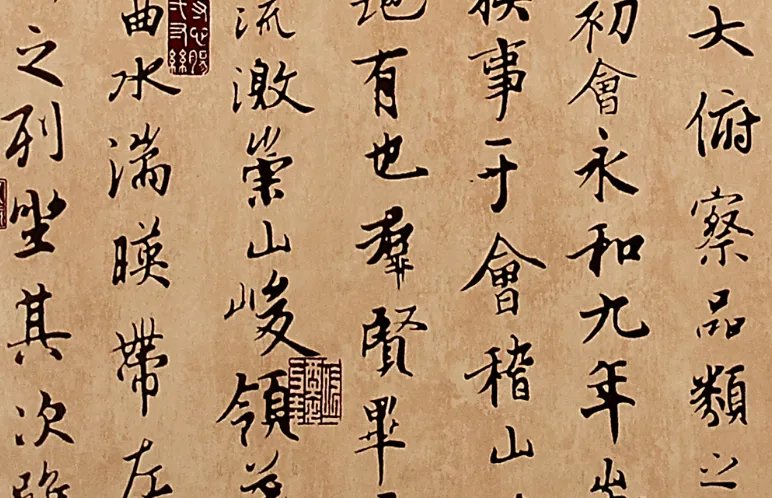 大俯察品類之
初會永和九年
事于會稽山
地有也羣賢畢
流激崇山峻領
曲水湍暎帶左
之列坐其次